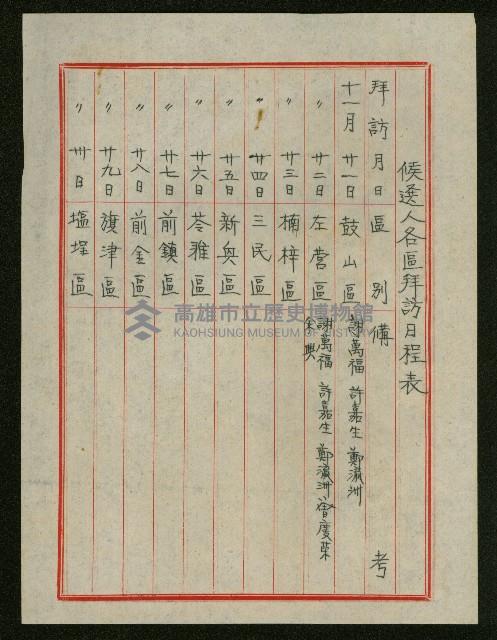 候選人各區拜訪日程表
拜訪月日 區別 備考
十一月 廿一日 鼓山區 謝萬福 許嘉生 鄭瀛洲
〃 廿二日 左營區 謝萬福 許嘉生 鄭瀛洲 曾慶榮
金興
〃 廿三日 楠梓區
〃 廿四日 三民區
〃 廿五日 新興區
〃 廿六日 苓雅區
〃 廿七日 前鎮區
〃 廿八日 前金區
〃 廿九日 旗津區
〃 卅日 塩埕區
高雄市立歷史博物館
KAOHSIUNG MUSEUM OF HISTORY